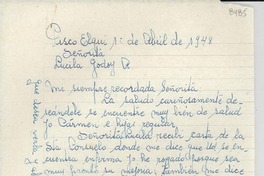 8485
Pisco Elqui 1: de Abril de 1948
Señorita
Lucila Godoy A
Me siempre recordada Señorita:
La saludo cariñosamente de-
seándole se encuentre muy bien de salud
yo Carmen e higi regular.
Señorita Lucila recibi carta de la
Sta Consuelo, donde me dice que Ud se en-
cuentra enferma yo he rogado porque sea
muy pronto su mejoria, tambien me dice
que desea verla